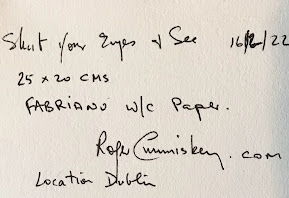 Shut your Eyes & See 16/2/22
25 x 20 CMS
FABRIANO W/C Paper.
Roger Cummiskey.com
Location Dublin